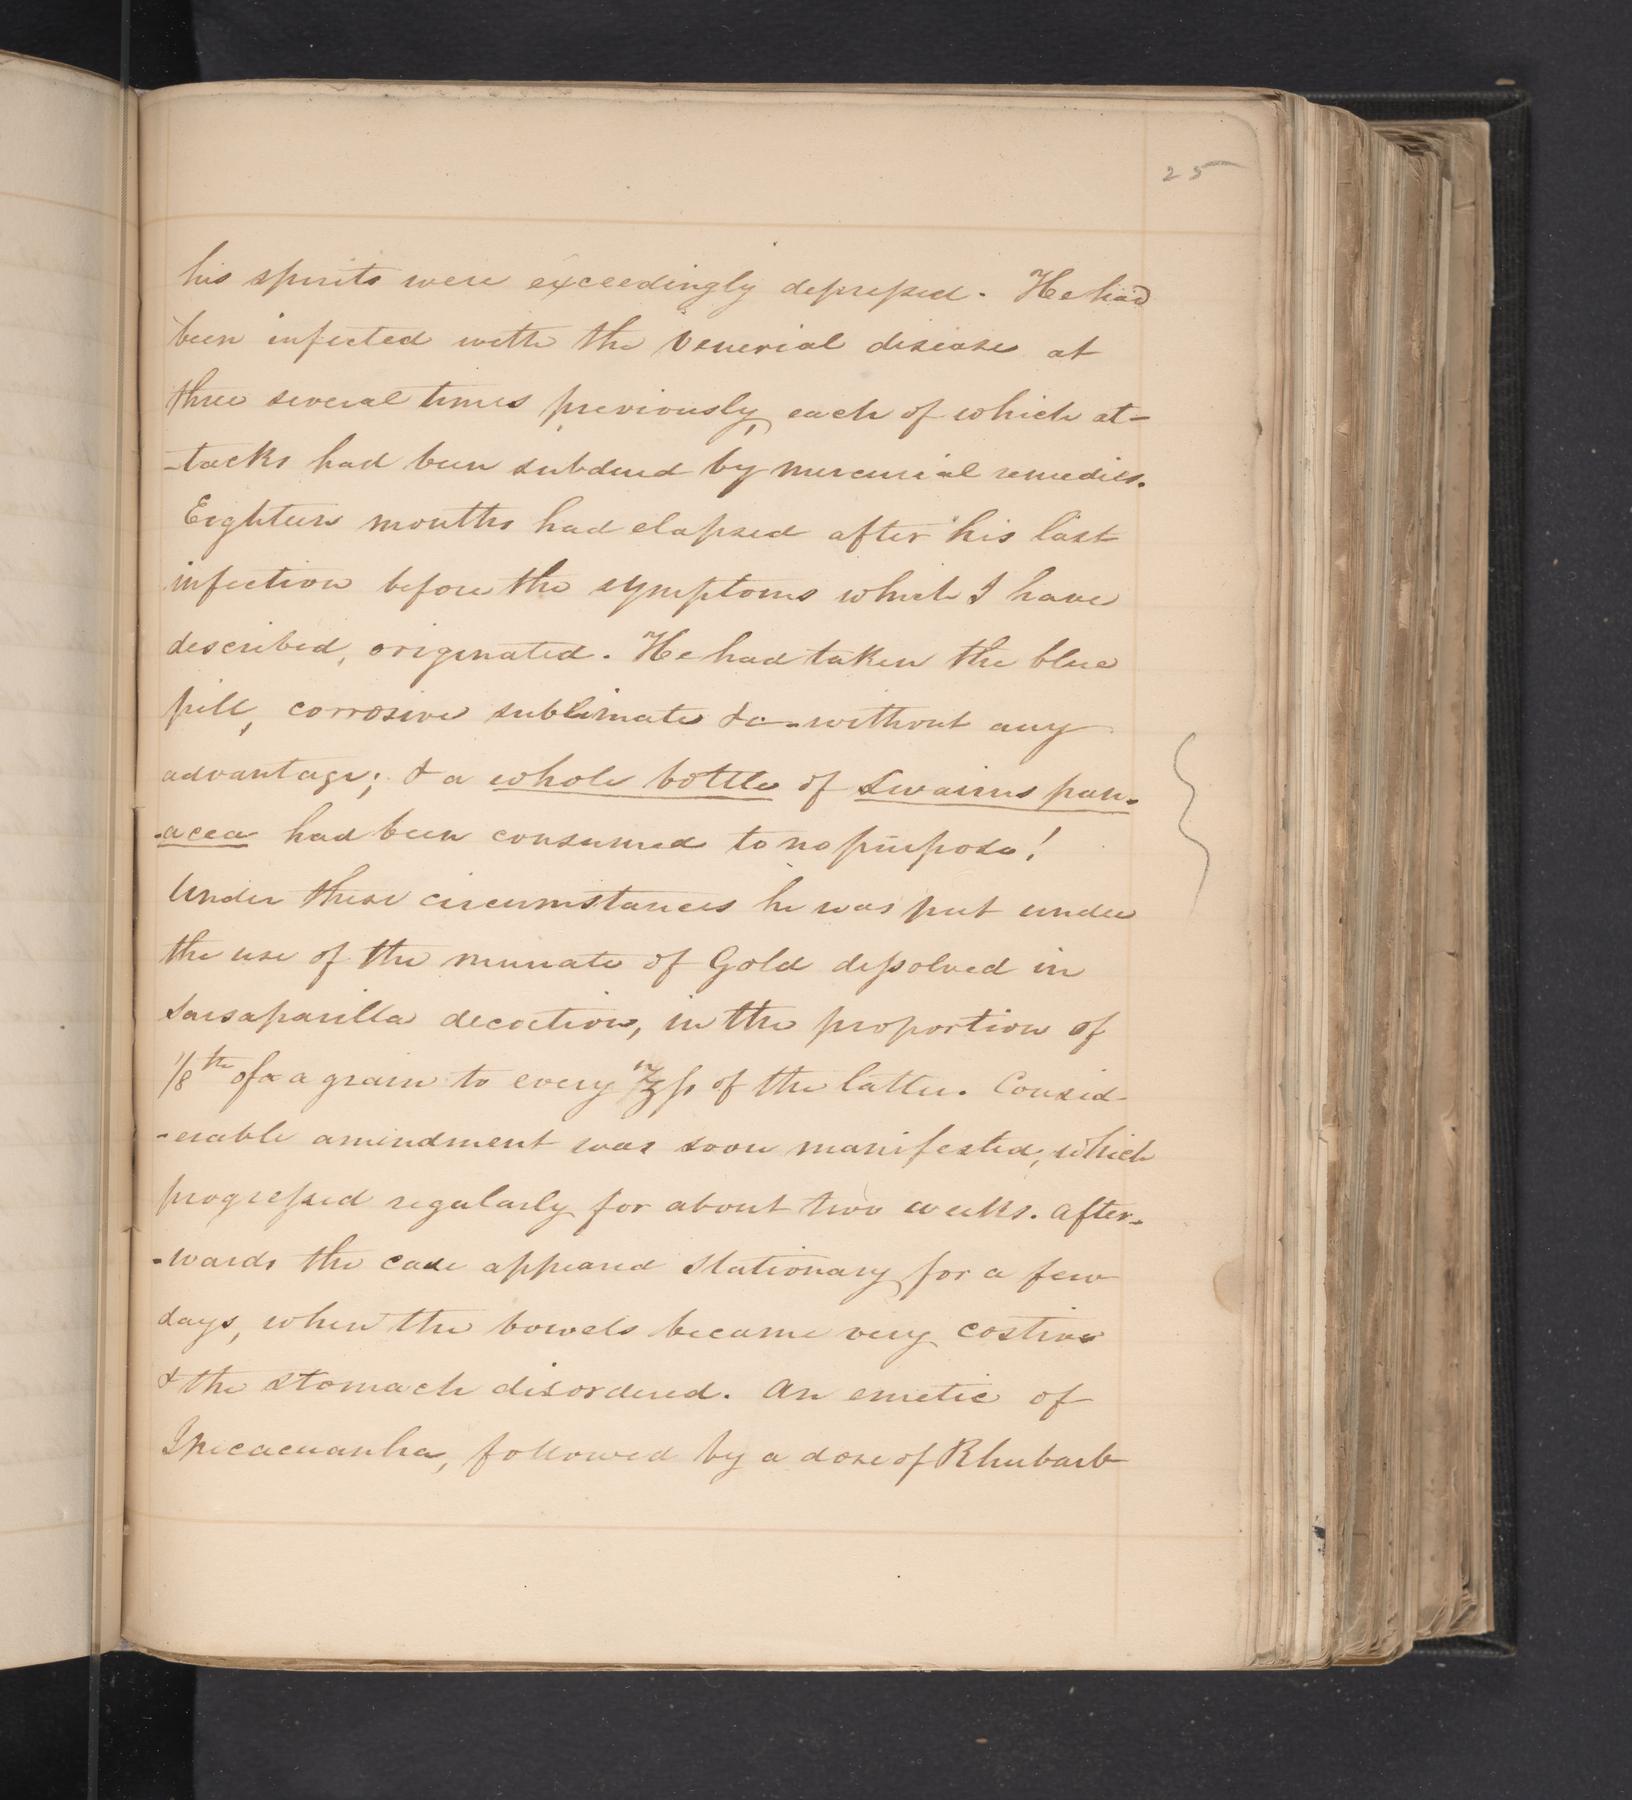 25
his spirits were exceedingly depressed. He had
been infected with the venerial disease at
three several times previously, each of which at-
-tacks had been subdued by mercurial remedies.
Eighteen months had elapsed after his last
infection before the symptoms which I have
described, originated. He had taken the blue
pill, corrosive sublimate &c. without any
advantage; & a whole bottle of Swaims pan-
-acea had been consumed to no purpose!
Under these circumstances he was put under
the use of the muriate of Gold dissolved in
sarsaparilla decoction, in the proportion of
1/8th of a a grain to every ℥ss of the latter. Consid-
-erable amendment was soon manifested, which
progressed regularly for about two weeks. After-
-wards the case appeared stationary for a few
days, when the bowels became very costive
& the stomach disordered. An emetic of
Ipecacuanha, followed by a dose of Rhubarb